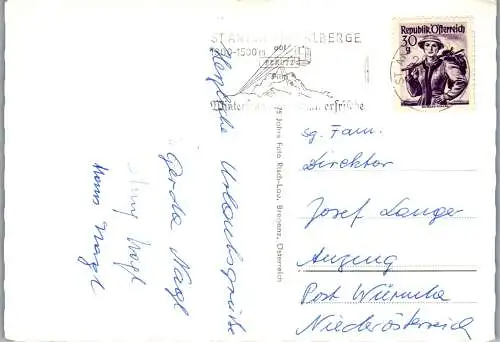 ST. ANTON AM ARLBERG
1300-1500 m
Wintersport Sommerfrische
Republik Österreich
30 g
Herzliche Urlaubsgrüße
Gerda Nagl
Hans Nagl
75 Jahre Foto Risch-Lau, Bregenz, Österreich
Sg. Fam.
Direktor
Josef Langer
Post
Niederösterreich